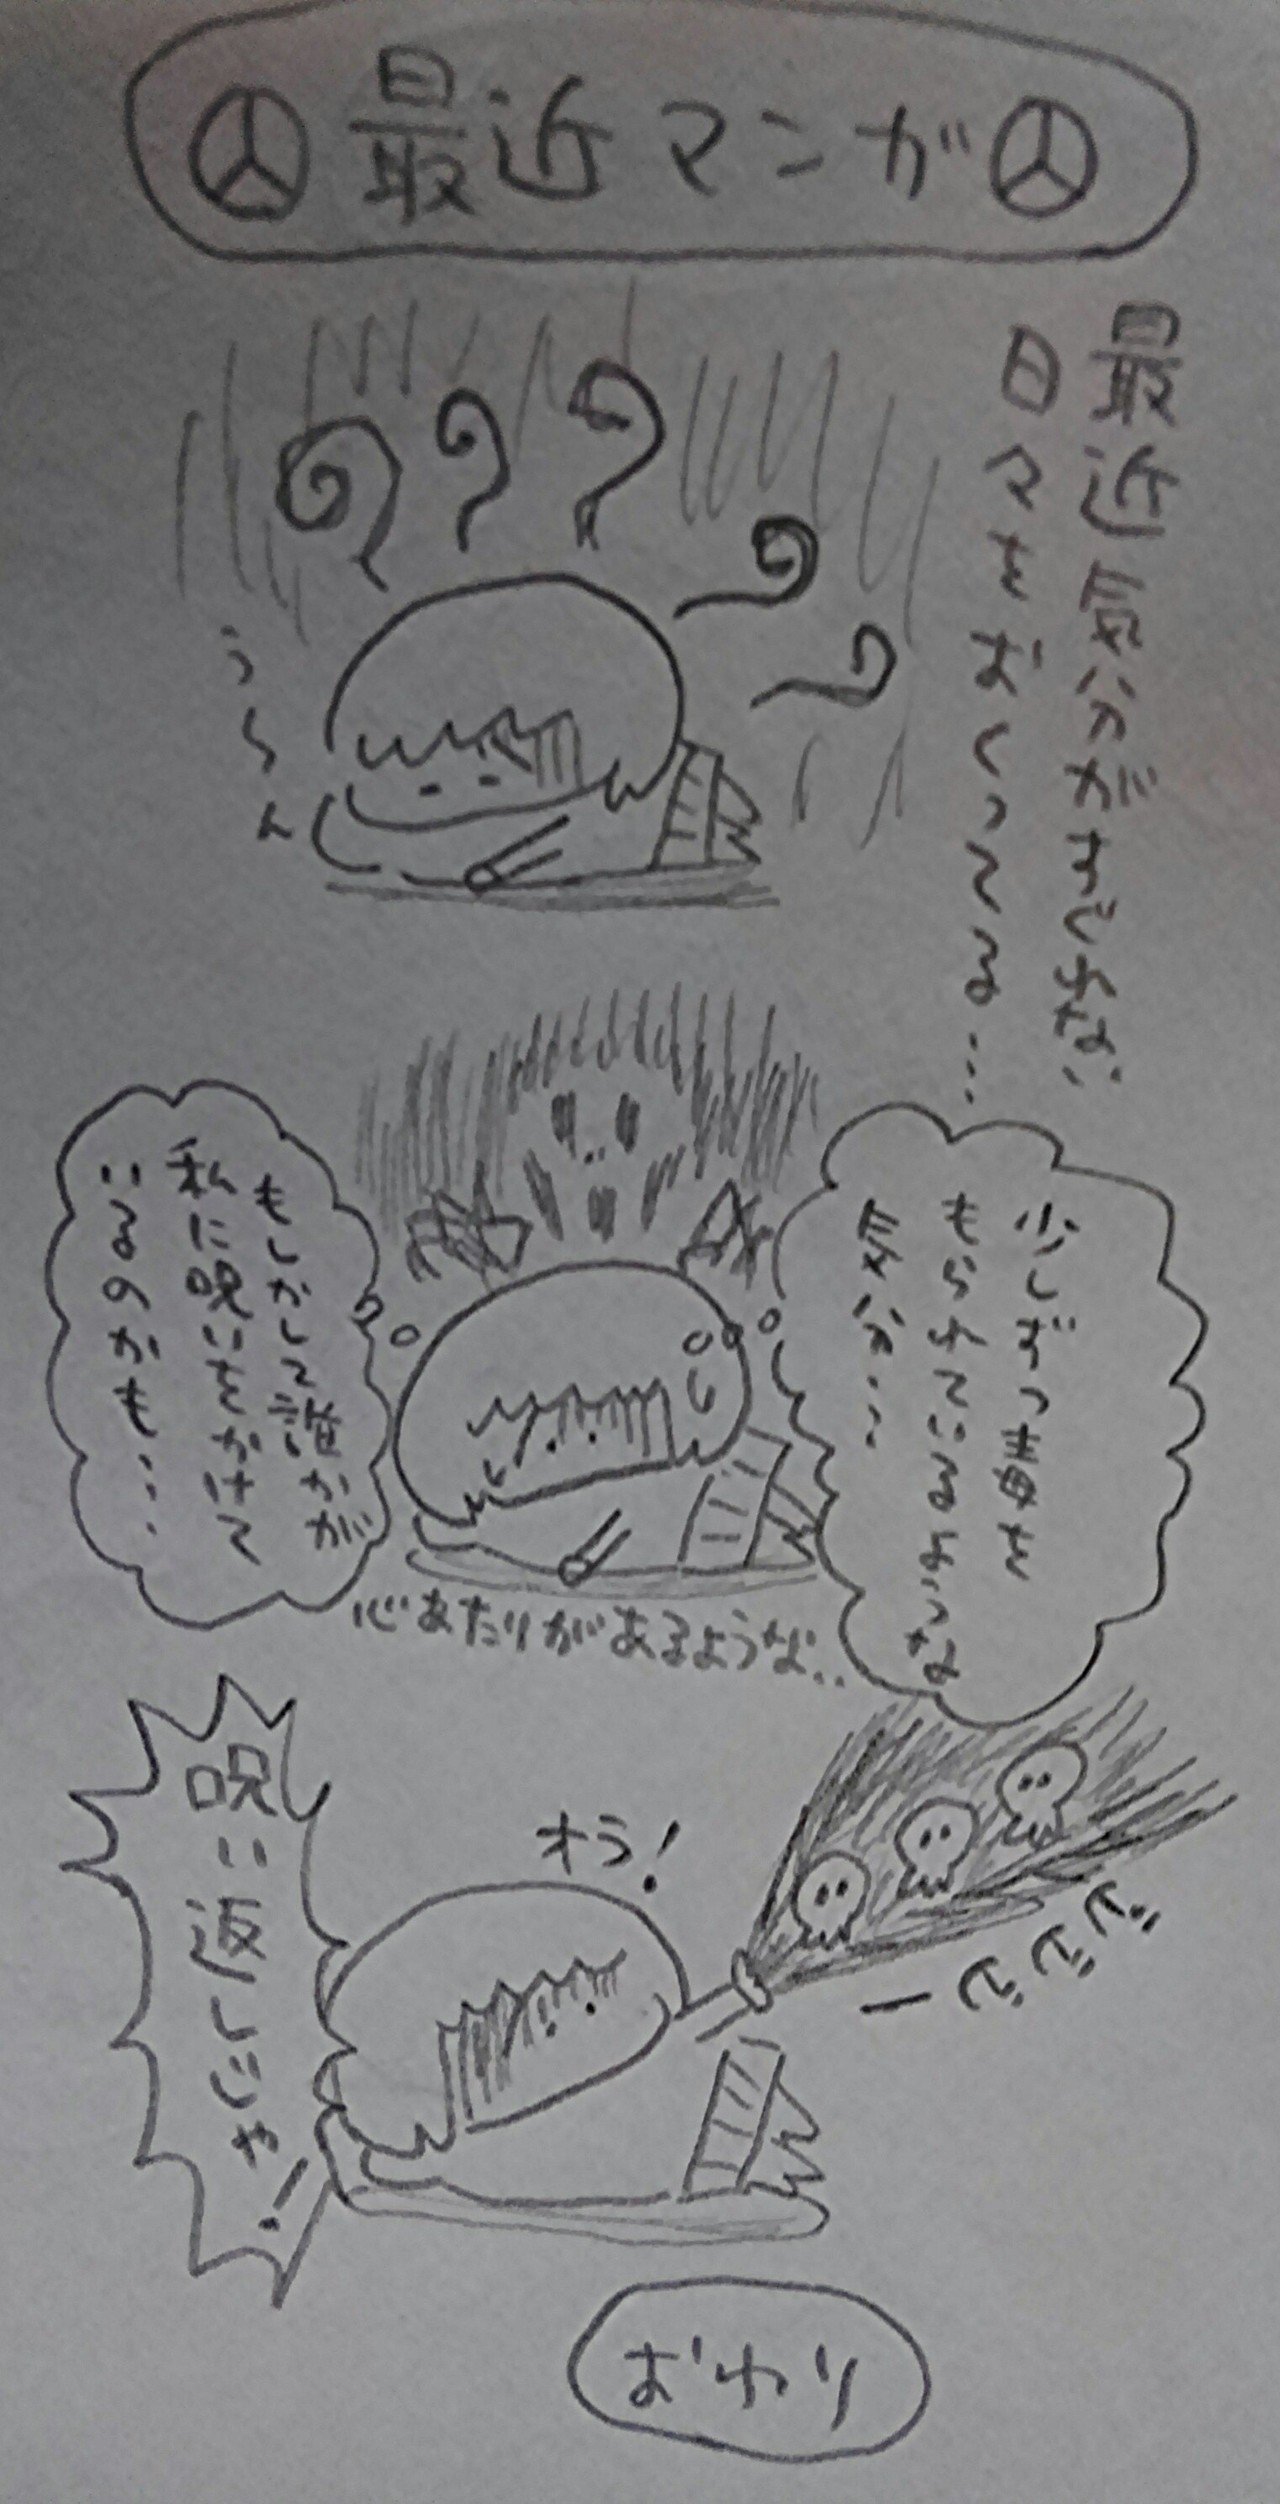 最近マンガ
最近 がすぐれない
日々をおくってる…
う〜ん
少しずつ
もしかして誰かが
私に呪いをかけて
いるのかも…
心あたりがあるような‥
オラ！
ビビビー
呪い返しじゃ！
おわり